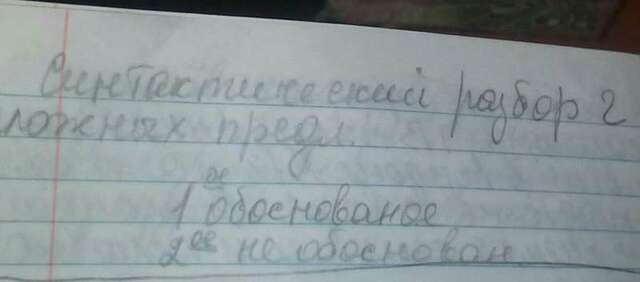 Синтактический разбор 2
ложных предл.
1ое обоснованое
2ое не обоснован